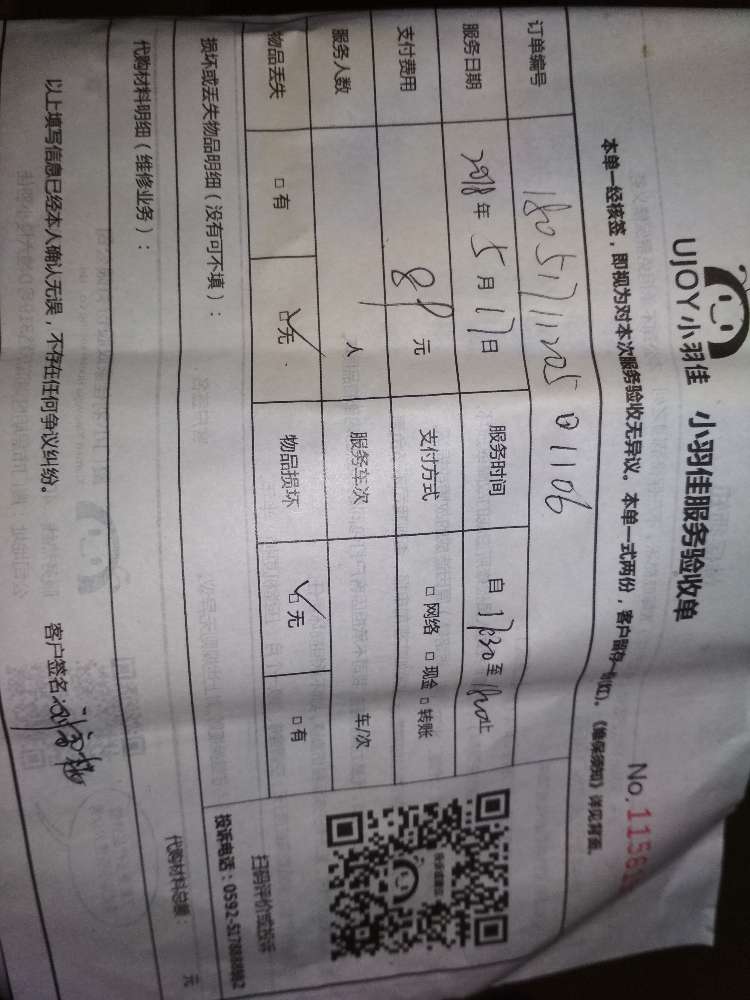 UJOY小羽佳 小羽佳服务验收单
No.11581
本单一经核签，即视为对本次服务验收无异议。本单一式两份，客户留存一份(红)。《维保须知》详见背面。
订单编号 1805171120501106
服务日期 2018年5月17日 服务时间 自17:30至 止
支付费用 89元 支付方式 □网络 □现金 □转账
服务人数 人 服务车次 车/次
物品丢失 □有 ☑无 物品损坏 ☑无 □有
损坏或丢失物品明细（没有可不填）：
扫码评价或投诉
投诉电话：0592-5178888转2
代购材料明细（维修业务）：
代购材料总额： 元
以上填写信息已经本人确认无误，不存在任何争议纠纷。 客户签名：